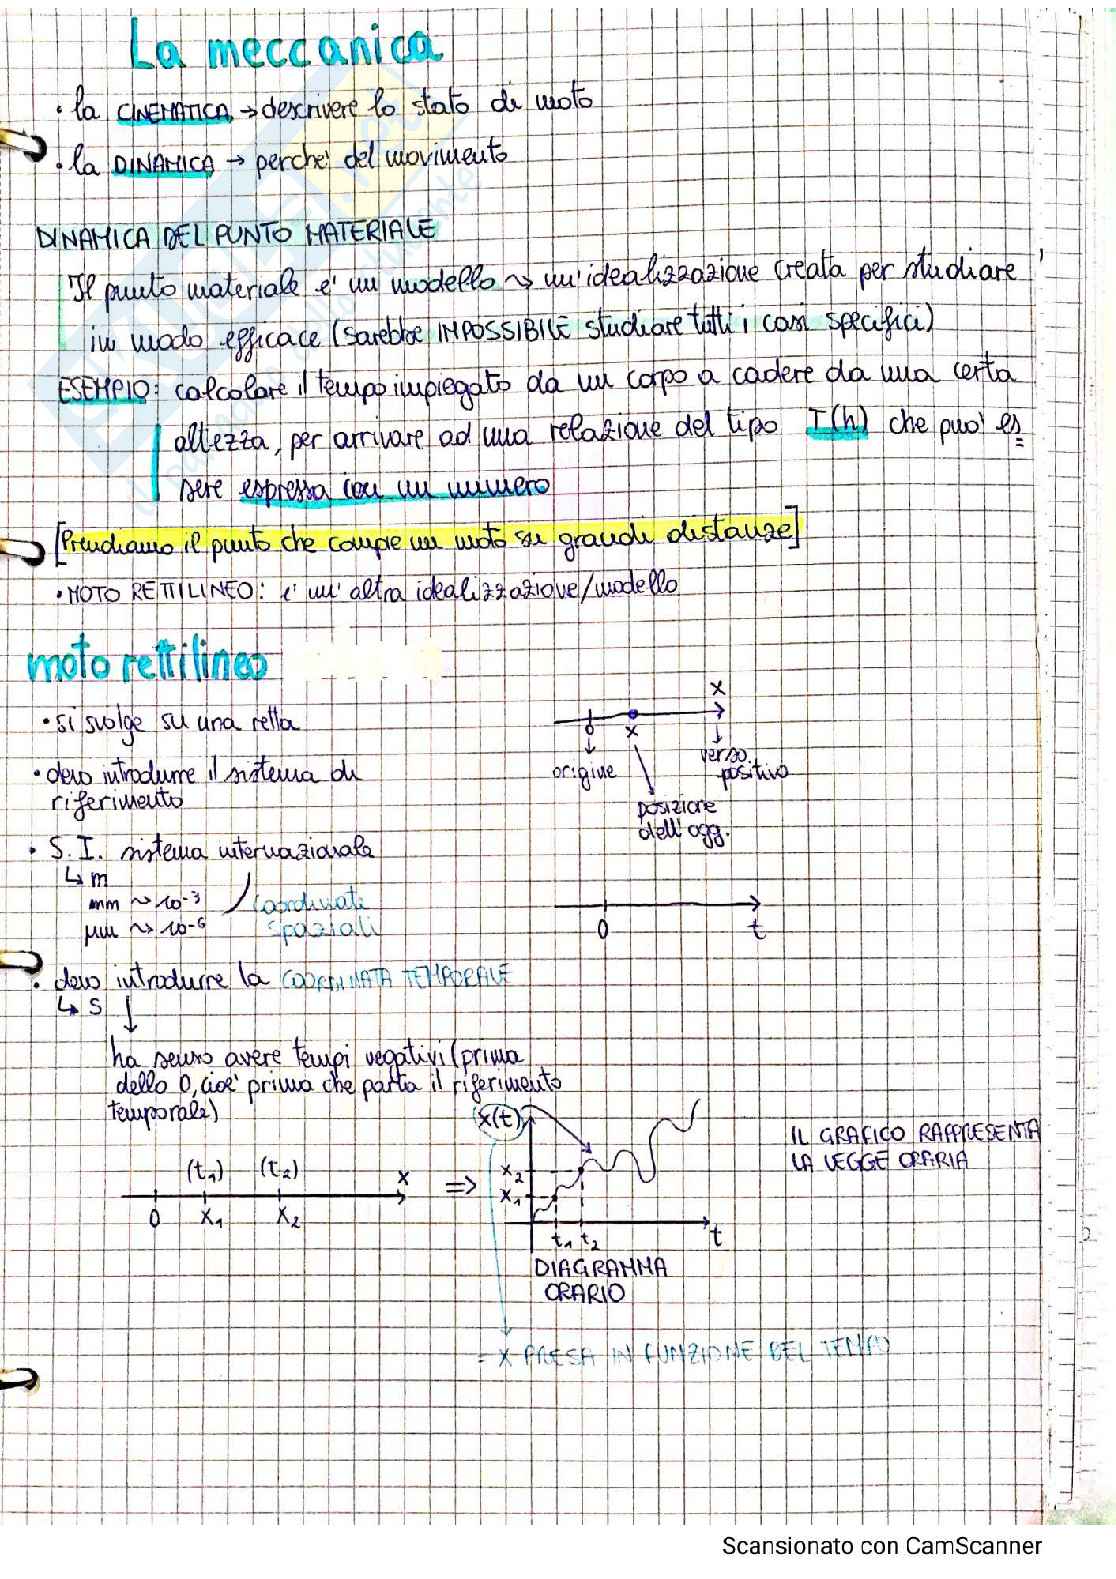 La meccanica
• la CINEMATICA → descrivere lo stato di moto
• la DINAMICA → perche' del movimento
DINAMICA DEL PUNTO MATERIALE
Il punto materiale e' un modello ~> un'idealizzazione creata per studiare
in modo efficace (sarebbe IMPOSSIBILE studiare tutti i casi specifici)
ESEMPIO: calcolare il tempo impiegato da un corpo a cadere da una certa
altezza, per arrivare ad una relazione del tipo T(h) che puo' es
sere espressa con un numero
[Prendiamo il punto che compie un moto su grandi distanze]
• MOTO RETTILINEO: e' un' altra idealizzazione/modello
moto rettilineo
• si svolge su una retta
x
0 x
origine
verso positivo
posizione
dell'ogg.
• devo introdurre il sistema di
riferimento
• S.I. sistema internazionale
↳ m
mm ~> 10⁻³
μm ~> 10⁻⁶
coordinate
spaziali
0 t
• devo introdurre la COORDINATA TEMPORALE
↳ s
ha senso avere tempi negativi (prima
dello 0, cioe' prima che parta il riferimento
temporale)
(t₁) (t₂) x
0 x₁ x₂
=>
x(t)
x₂
x₁
t₁ t₂ t
DIAGRAMMA
ORARIO
IL GRAFICO RAPPRESENTA
LA LEGGE ORARIA
= X PRESA IN FUNZIONE DEL TEMPO
Scansionato con CamScanner